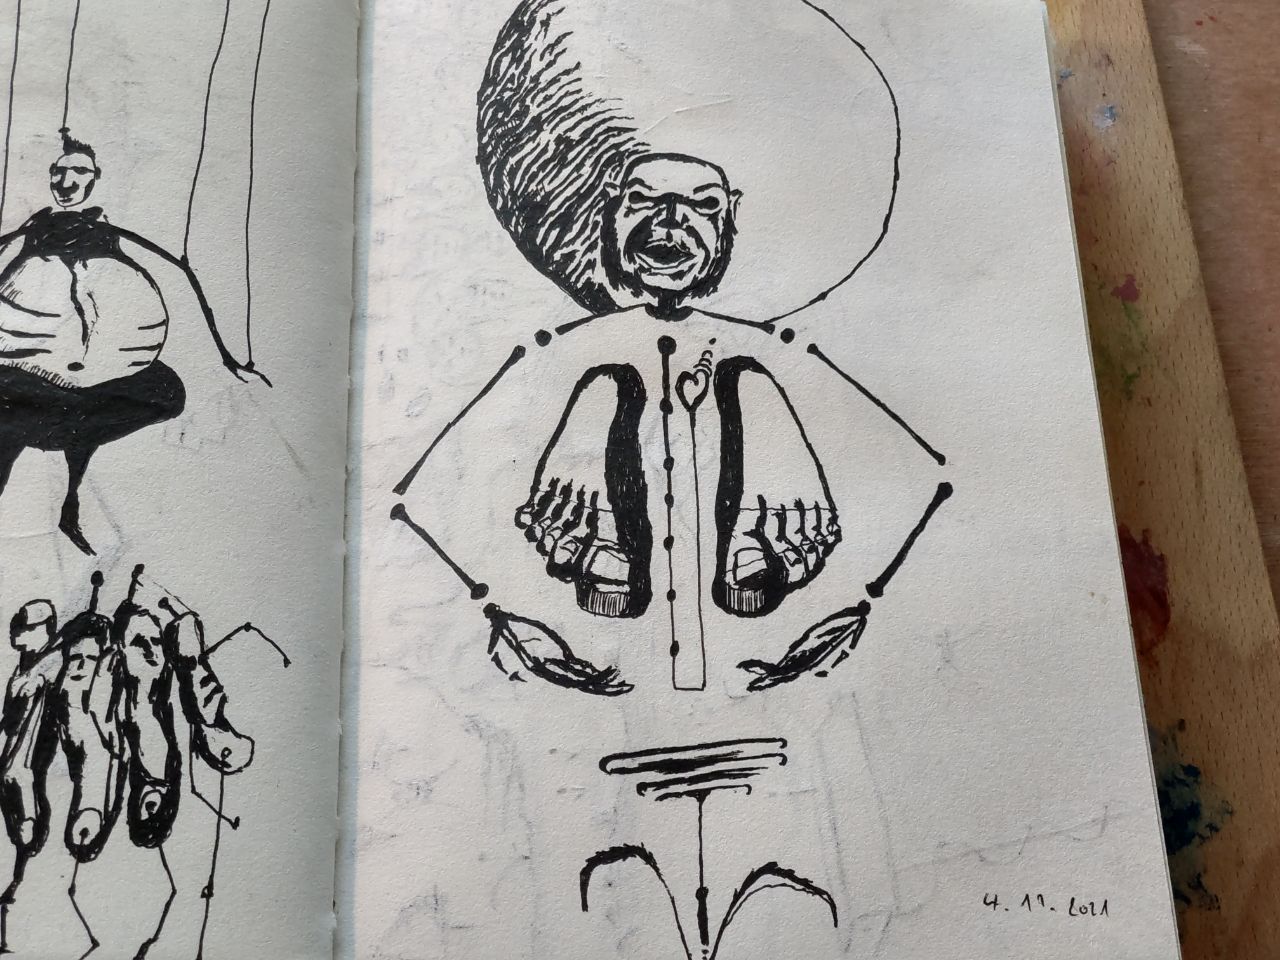 4. 12. 2021